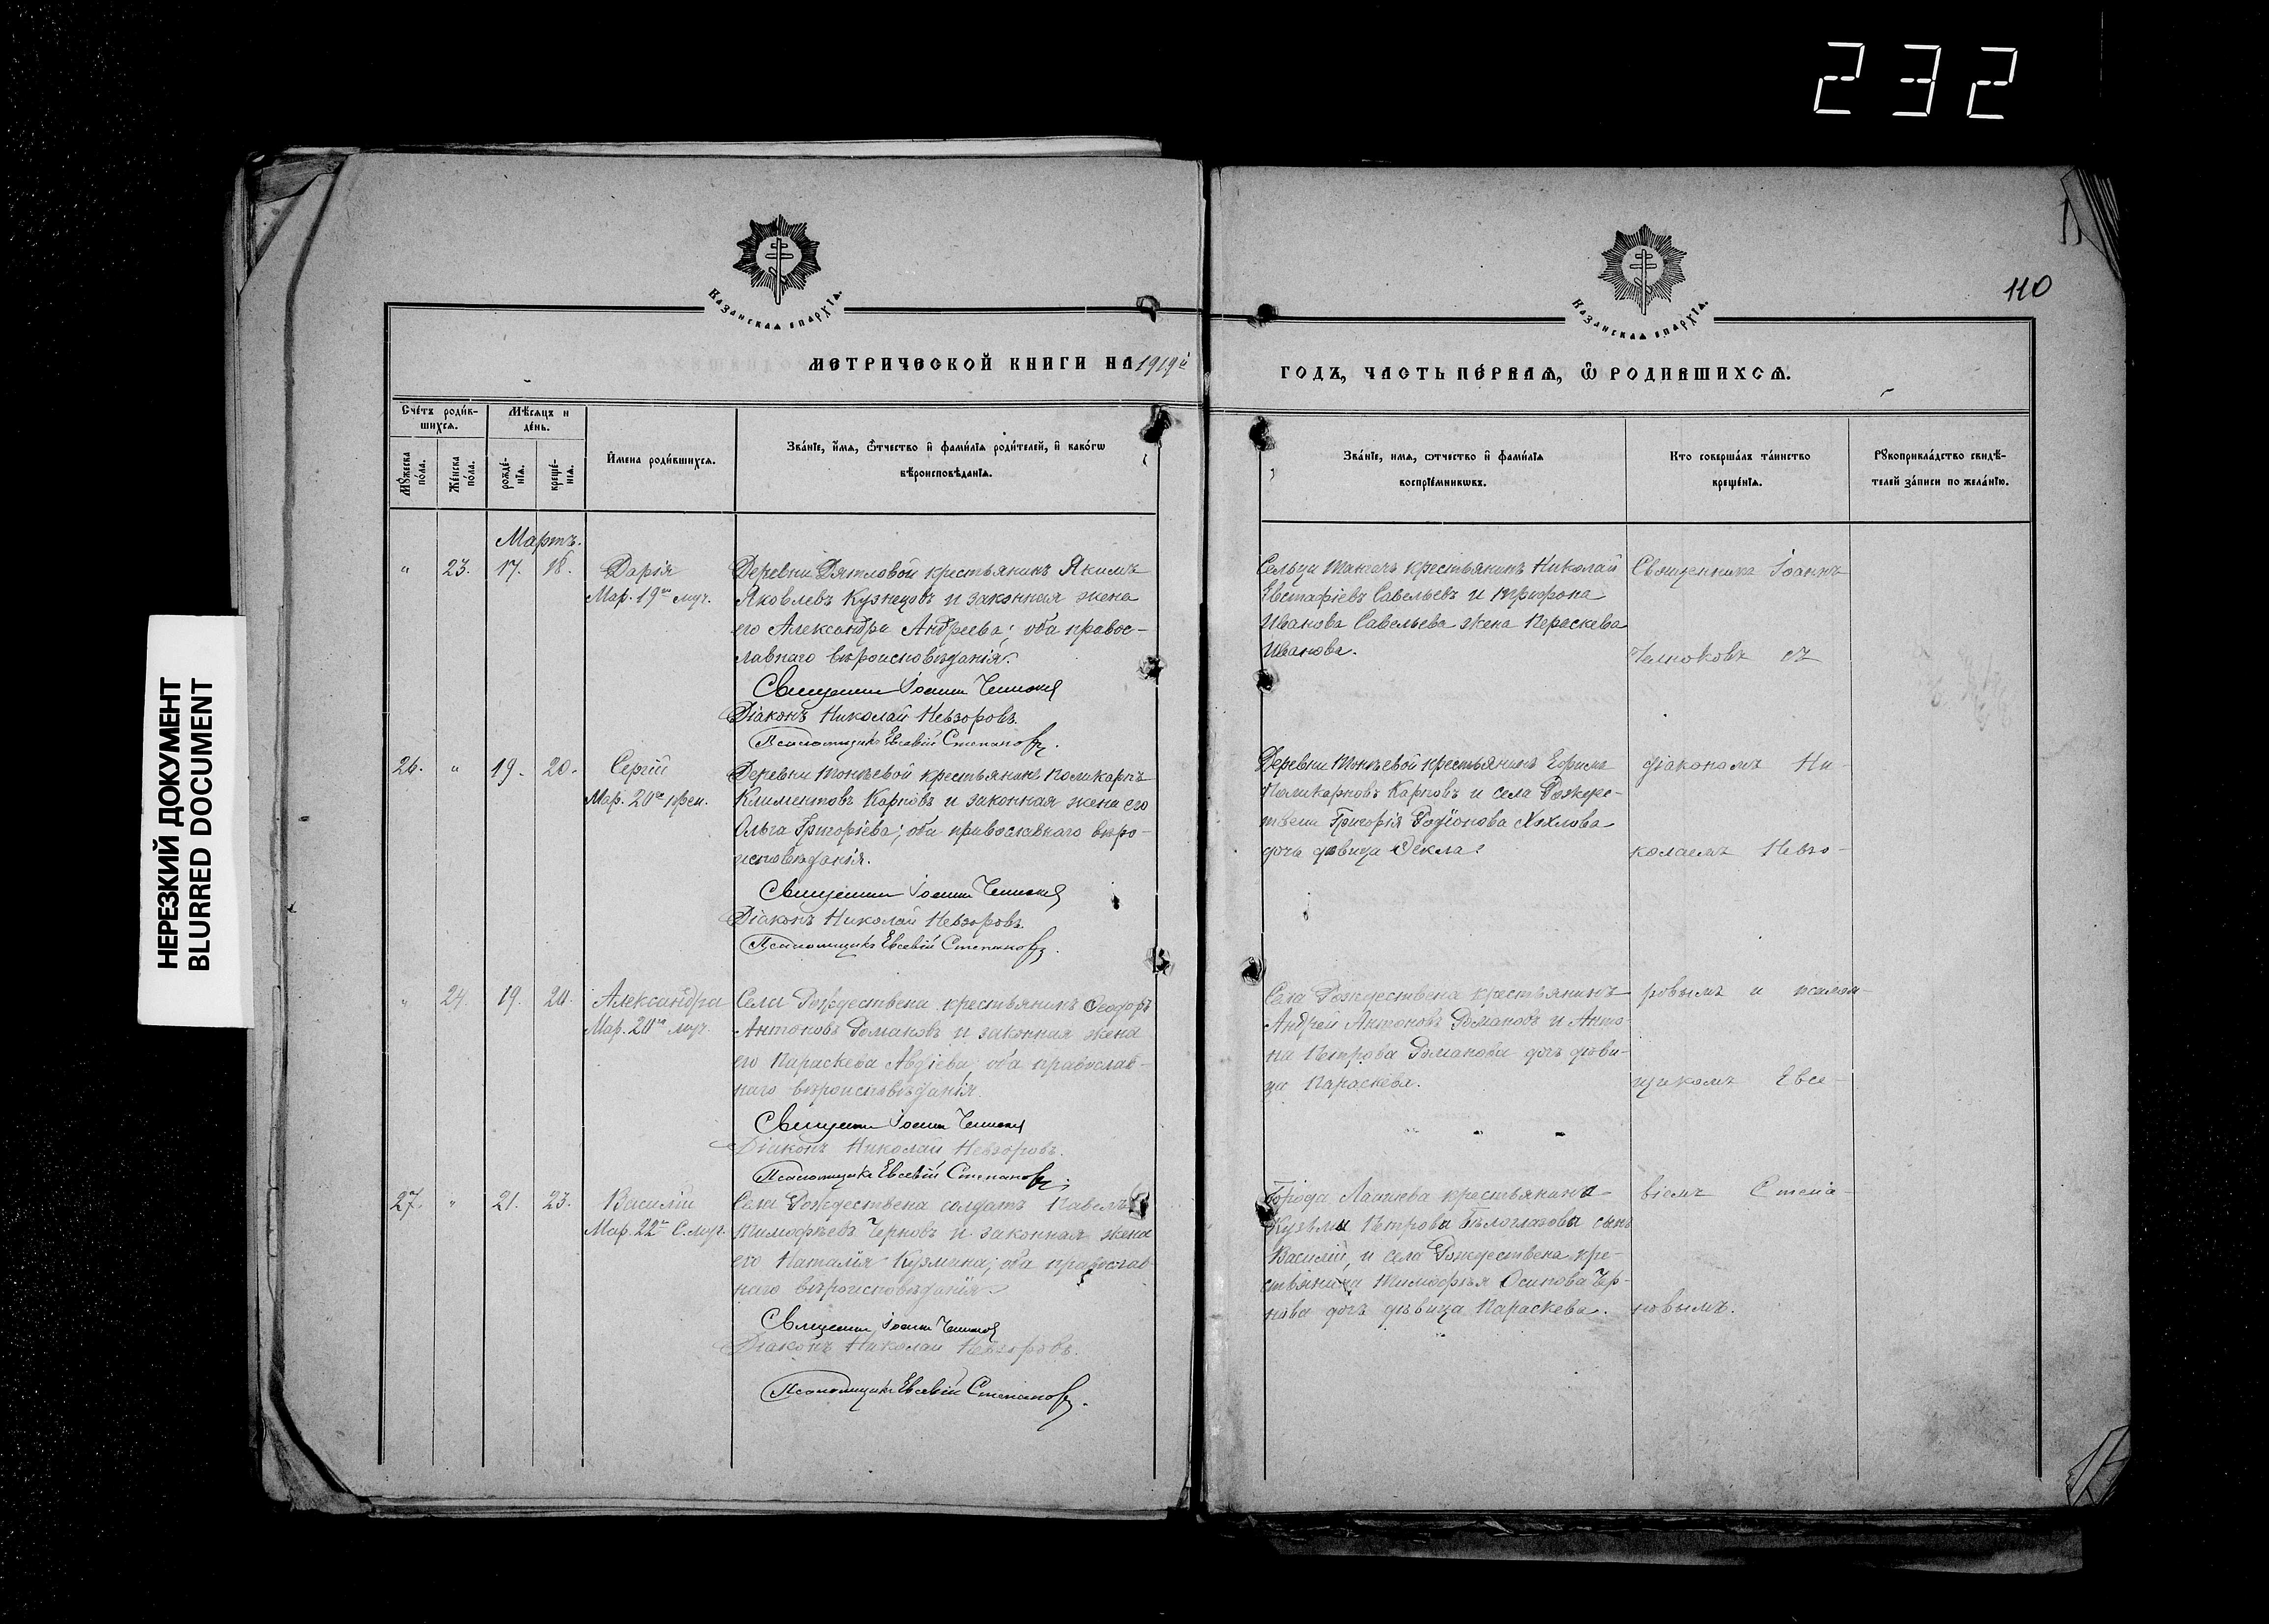 232
110
НЕРЕЗКИЙ ДОКУМЕНТ
BLURRED DOCUMENT
Казанская епархїѧ.
Казанская епархїѧ.
МЕТРИЧЕСКОЙ КНИГИ НА 1919й
ГОДЪ, ЧАСТЬ ПЕ́РВАѦ, Ѽ РОДИВШИХСѦ.
Сче́тъ роди́в-
шихсѧ.
Мѣ́сѧцъ и
де́нь.
Мꙋ́жеска
по́ла.
Же́нска
по́ла.
рожде́-
нїѧ.
креще́-
нїѧ.
И́мена роди́вшихсѧ.
Зва́нїе, и́мѧ, ѻ҆́тчество и҆ фами́лїѧ роди́телей, и҆ како́гѡ
вѣроисповѣ́данїѧ.
Зва́нїе, имѧ, ѻтчество и҆ фами́лїѧ
воспрїе́мникѡвъ.
Кто соверша́лъ та́инство
креще́нїѧ.
Рꙋкоприкла́дство свидѣ́-
телей за́писи по жела́нїю.
Мартъ.
" 23. 17. 18. Дарія
Мар. 19го муч.
Деревни Дятловой крестьянинъ Якимъ
Яковлевъ Кузнецовъ и законная жена
его Александра Андреева; оба правос-
лавнаго вѣроисповѣданія.
Священникъ Іоаннъ Челноковъ
Діаконъ Николай Невзоровъ.
Псаломщикъ Евсевій Степановъ.
Сельца крестьянинъ Николай
Евстафіевъ Савельевъ и Трифона
Иванова Савельева жена Параскева
Иванова.
Священникъ Іоаннъ
Челноковъ съ
26. " 19. 20. Сергій
Мар. 20го преп.
Деревни крестьянинъ Поликарпъ
Климентовъ Карповъ и законная жена его
Ольга Григоріева; оба православнаго вѣро-
исповѣданія.
Священникъ Іоаннъ Челноковъ
Діаконъ Николай Невзоровъ.
Псаломщикъ Евсевій Степановъ.
Деревни крестьянинъ Ефимъ
Поликарповъ Карповъ и села Рождес-
твена Григорія Родіонова Хохлова
дочь дѣвица Ѳекла.
діакономъ Ни-
колаемъ Невзо-
" 24. 19. 20. Александра
Мар. 20го муч.
Села Рождествена крестьянинъ Ѳеодоръ
Антоновъ Романовъ и законная жена
его Параскева Авдіева, оба православ-
наго вѣроисповѣданія.
Священникъ Іоаннъ Челноковъ
Діаконъ Николай Невзоровъ.
Псаломщикъ Евсевій Степановъ.
Села Рождествена крестьянинъ
Андрей Антоновъ Романовъ и Анто-
на Петрова Романова дочь дѣви-
ца Параскева.
ровымъ и псалом-
щикомъ Евсе-
27. " 21. 23. Василій
Мар. 22го С. муч.
Села Рождествена солдатъ Павелъ
Тимофѣевъ Черновъ и законная жена
его Наталія Кузмина; оба православ
наго вѣроисповѣданія.
Священникъ Іоаннъ Челноковъ
Діаконъ Николай Невзоровъ.
Псаломщикъ Евсевій Степановъ.
Города Лаишева крестьянина
Кузьмы Петрова Бѣлоглазова сынъ
Василій, и села Рождествена кре-
стьянина Тимофѣя Осипова Чер-
нова дочь дѣвица Параскева.
віемъ Степа-
новымъ.